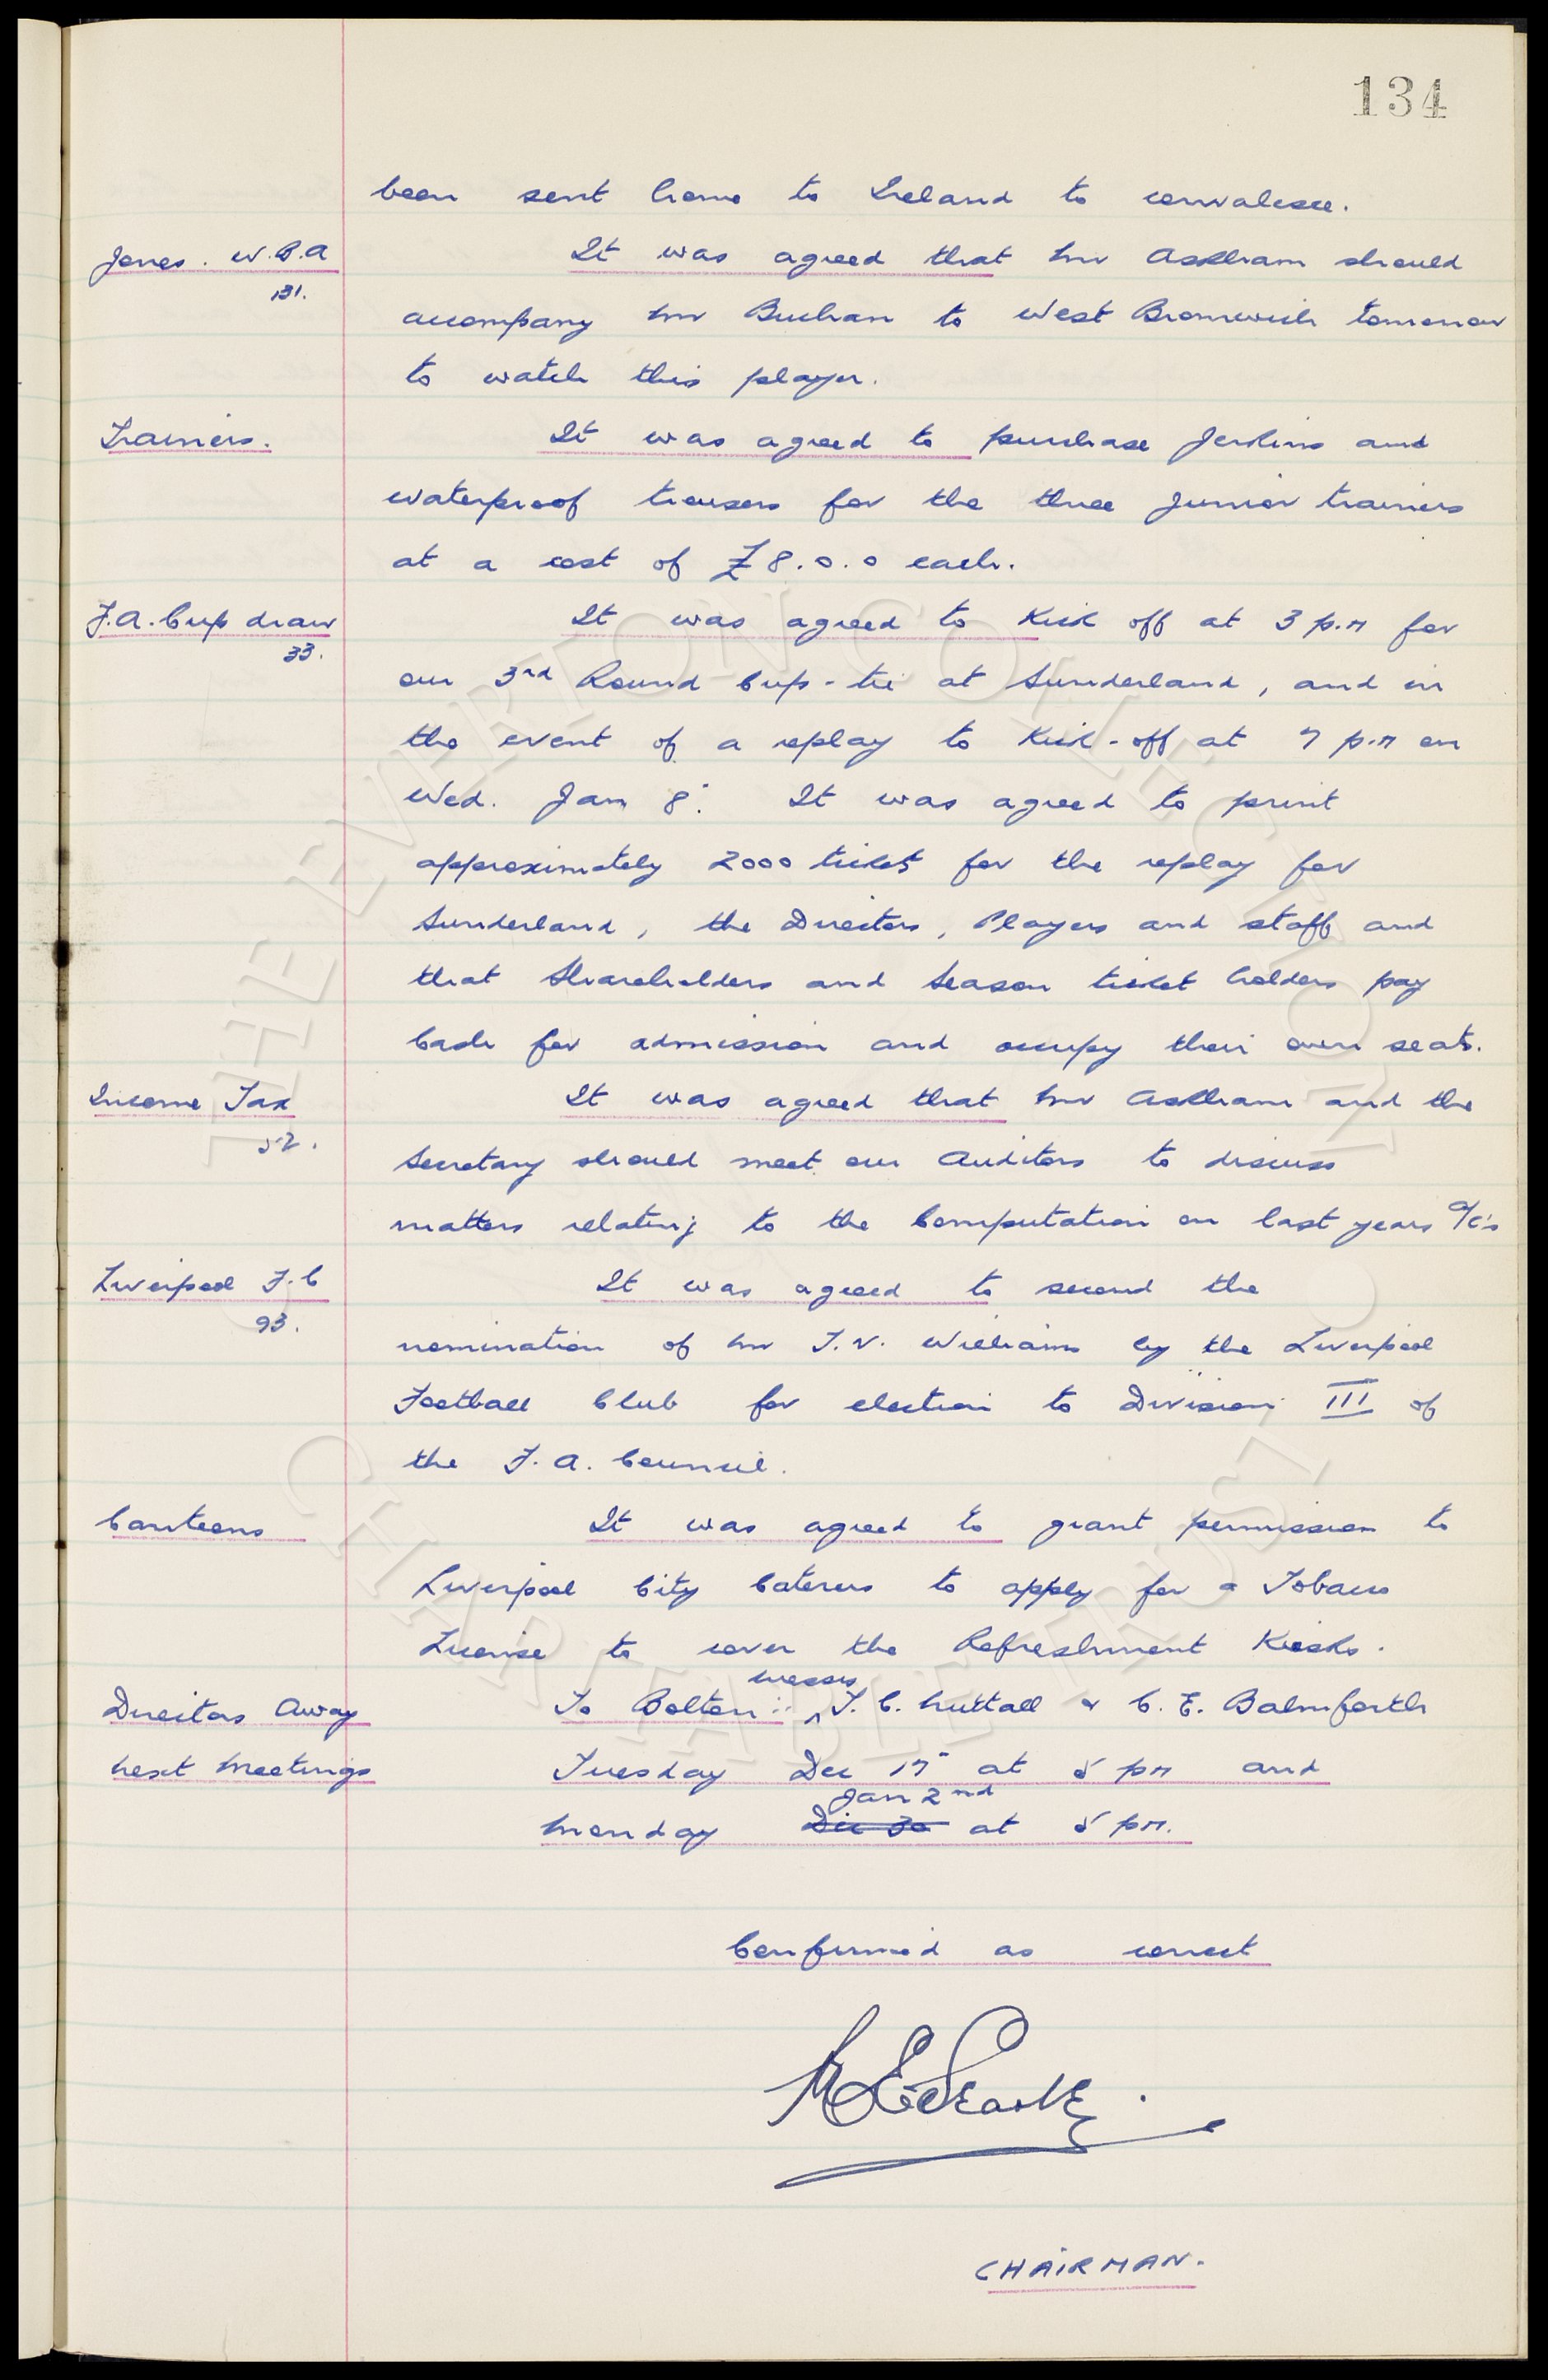 134
been sent home to Ireland to convalesce.
Jones. W.B.A It was agreed that Mr Askham should
131.
accompany Mr Buchan to West Bromwich tomorrow
to watch this player.
Trainers. It was agreed to purchase Jerkins and
waterproof trousers for the three junior trainers
at a cost of £8.0.0 each.
F.A. Cup draw It was agreed to Kick off at 3 p.m for
33.
our 3rd Round Cup-tie at Sunderland, and in
the event of a replay to Kick-off at 7 p.m on
Wed. Jan 8". It was agreed to print
approximately 2000 tickets for the replay for
Sunderland, the Directors, Players and staff and
that Shareholders and Season ticket holders pay
Cash for admission and occupy their own seats.
Income Tax It was agreed that Mr Askham and the
52.
Secretary should meet our Auditors to discuss
matters relating to the Computation on last years a/c's
Liverpool F.C It was agreed to second the
93.
nomination of Mr T.V. Williams by the Liverpool
Football Club for election to Division III of
the F.A. Council.
Canteens It was agreed to grant permission to
Liverpool City Caterers to apply for a Tobacco
License to cover the Refreshment Kiosks.
Messrs
Directors Away To Bolton :- ^ T.C. Nuttall & C.E. Balmforth
Next Meetings Tuesday Dec 17" at 5 pm and
Jan 2nd
Monday Dec 30 at 5 pm.
Confirmed as correct
CHAIRMAN.
THE EVERTON COLLECTION
CHARITABLE TRUST